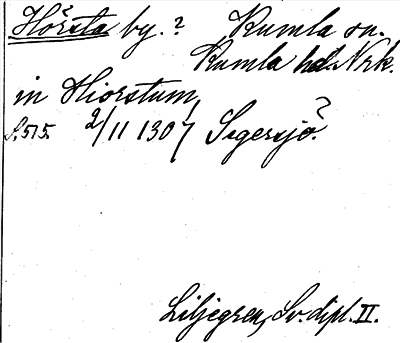 Hörsta by.? Kumla sn.
Kumla hd. Nrk.
in Hiorstum,
S. 515. 2/11 1307 Segersjö?
Liljegren, Sv. dipl. II.